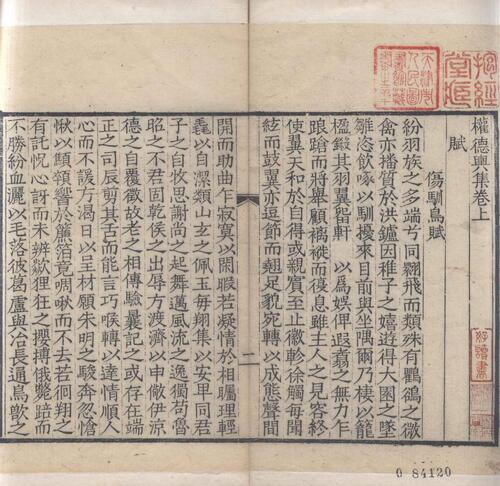 權德輿集卷上
賦
傷馴鳥賦
紛羽族之多端兮同翾飛而類殊有鸜鵒之微
禽亦播質於洪鑪因稚子之嬉遊得大囷之墜
雛恣飲啄以馴擾來目前與坐隅爾乃棲以籠
楹鎩其羽翼留軒 以爲娛俾遐翥之無力乍
踉蹌而將舉顧褵褷而復息雖主人之見容終
使翼天和於自得或親賓至止徽軫徐觸每聞
絃而鼓翼亦逗節而翹足貌宛轉以成態聲間
二
開而助曲乍寂寞以閑暇若凝情於相矚理輕
毳以自潔類山玄之佩玉每翔集以安卑同君
子之自牧思謝尚之起舞邁風流之逸獨苟魯
昭之不君固乾侯之出辱方渡濟以申儆伊涼
德之覆徵故老之相傳驗曩記之或存在端
正之司辰剪其舌而能言巧喉轉以達情順人
心而不諼方渴日以呈材願朱明之駿奔忽愴
愀以顛領響於簾箔竟啁啾而不去若徊翔之
有託怳心訝而未辨歘狸狂之攖搏俄斃踣而
不勝紛血灑以毛落彼葛盧與冶長通鳥獸之
好讀書
0 84120